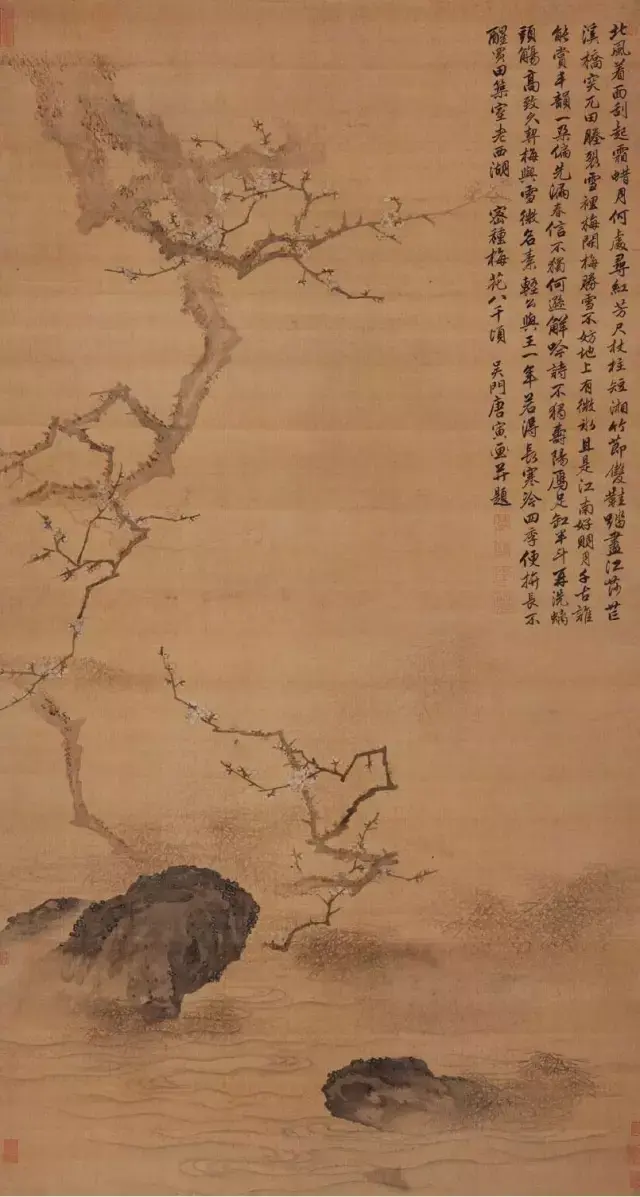 北風着面刮起霜蜡月何處尋紅芳尺杖柱短湘竹節雙鞋踏盡江
溪橋突兀田塍裂雪裡梅開梅勝雪不妨地上有微冰且是江南好明月千古誰
能賞丰韻一朵偏先漏春信不獨何遜解吟詩不獨壽陽足缸半斗再洗螭
頭觴高致久梅與雪微名素輕公與王一年若得長寒冷四季便拚長不
醒買田築室老西湖 密種梅花八千頃 吳門唐寅画并題